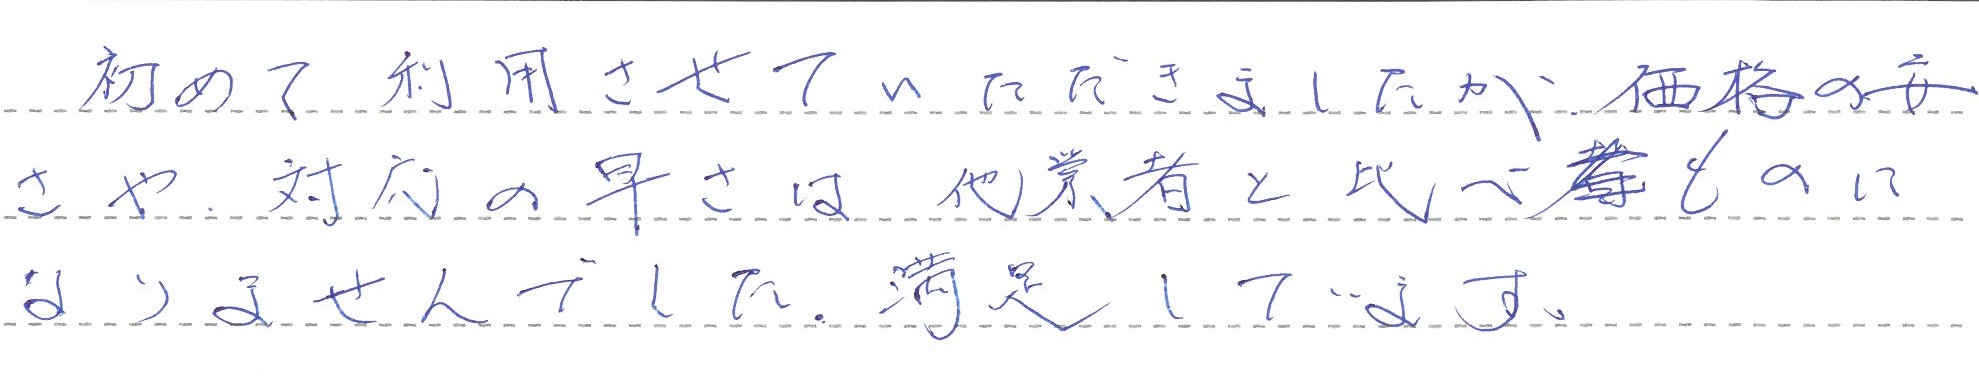 初めて利用させていただきましたが、価格の安
さや、対応の早さは他業者と比べものに
なりませんでした。満足しています。